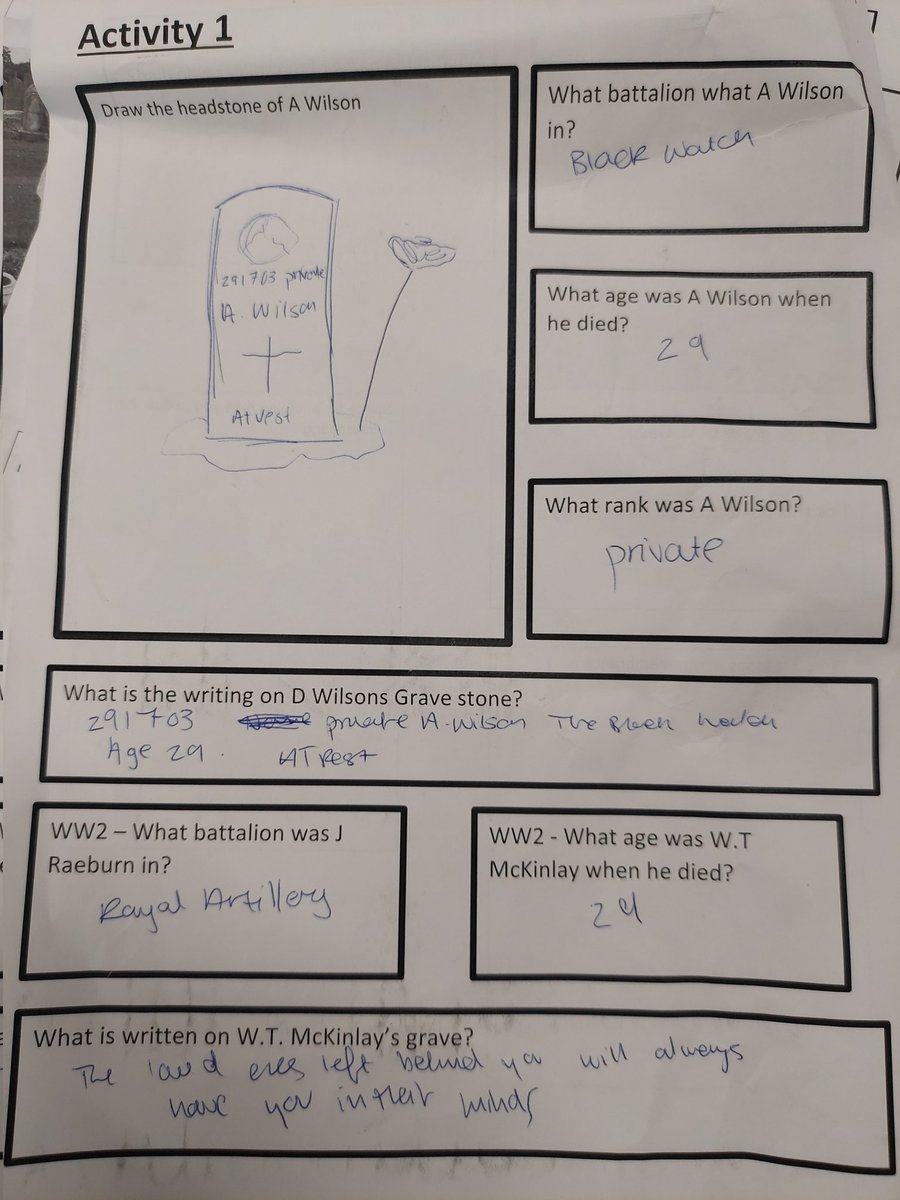 Activity 1
Draw the headstone of A Wilson
291703 private
A. Wilson
At rest
What battalion what A Wilson
in?
Black Watch
What age was A Wilson when
he died?
29
What rank was A Wilson?
private
What is the writing on D Wilsons Grave stone?
291703 private A. Wilson The Black Watch
Age 29. AT Rest
WW2 – What battalion was J
Raeburn in?
Royal Artillery
WW2 - What age was W.T
McKinlay when he died?
29
What is written on W.T. McKinlay's grave?
The loved ones left behind you will always
have you in their minds